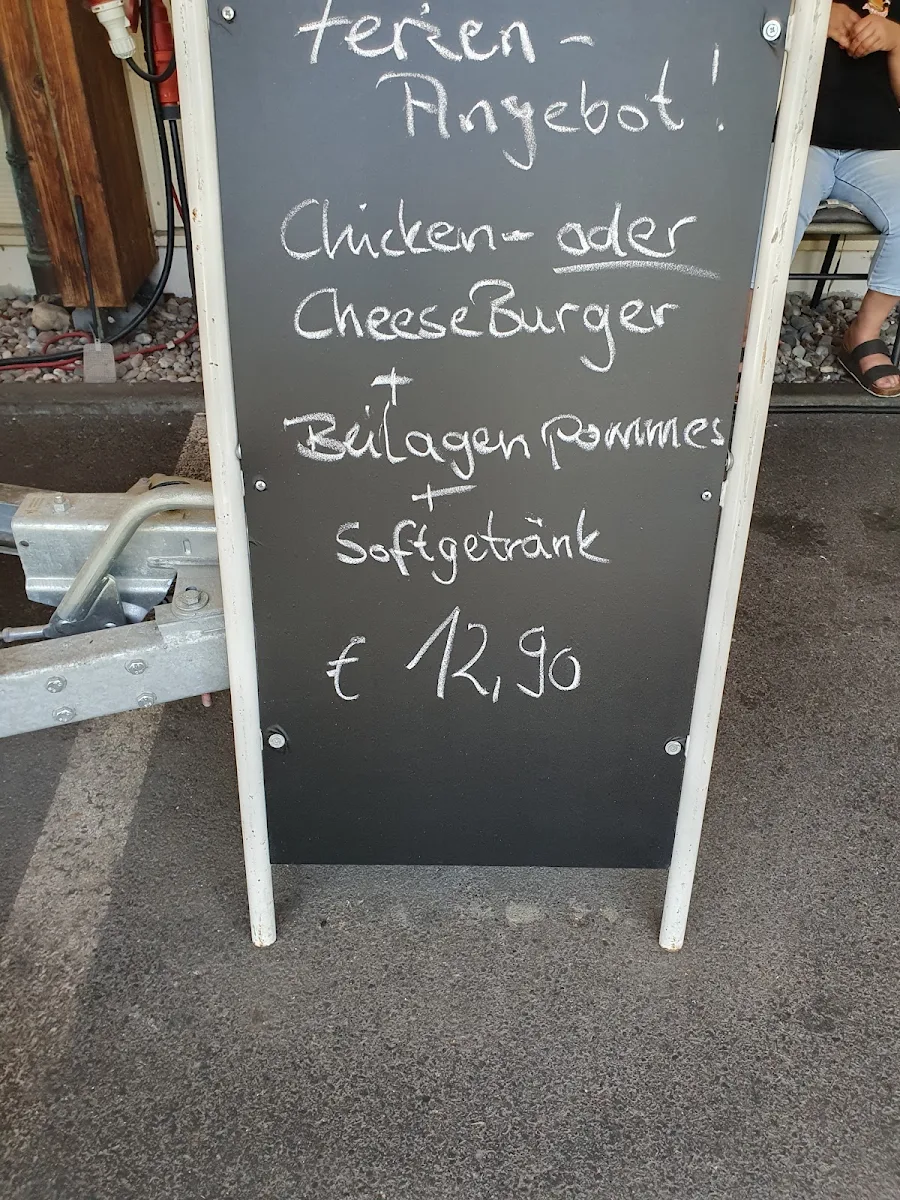 Ferien-
Angebot!
Chicken- oder
CheeseBurger
+
Beilagenpommes
+
Softgetränk
€ 12,90